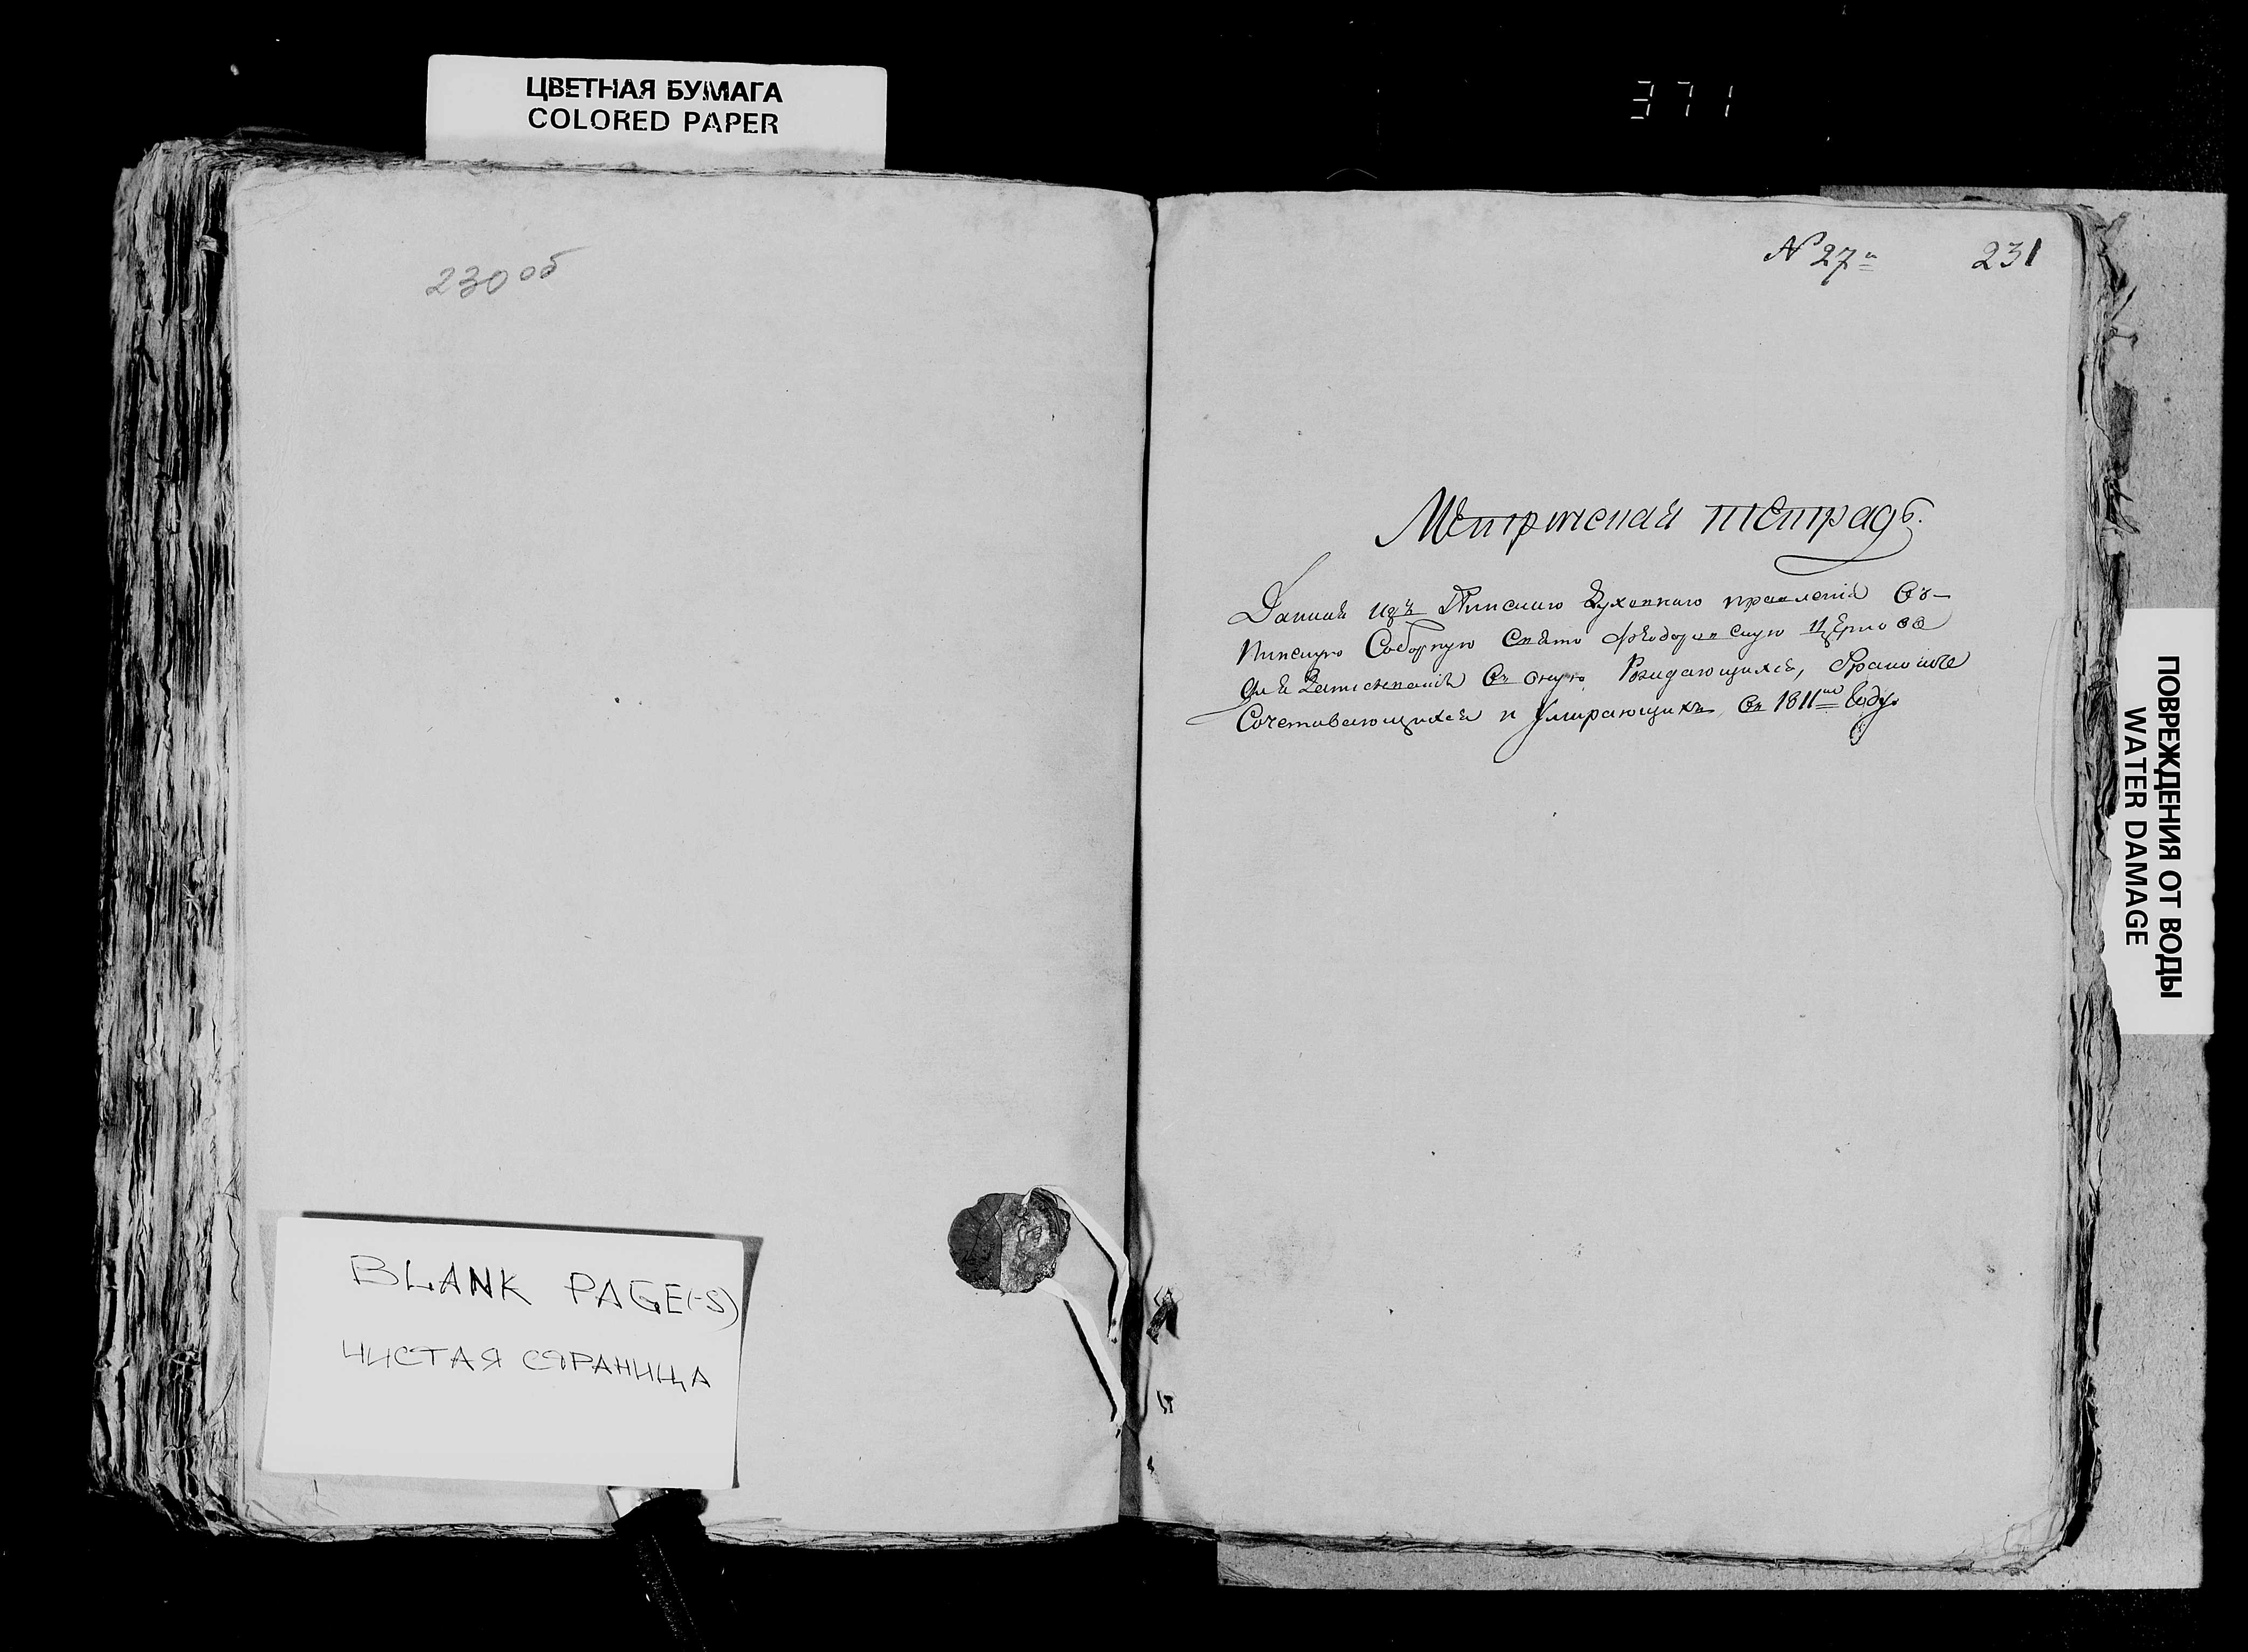 ЦВЕТНАЯ БУМАГА
COLORED PAPER
371
230 об
N 27й
231
Метрическая тетрадь.
Данная изъ Пинскаго Духовнаго правленія Въ
Пинскую Соборную Свято Феодоровскую Церковь
для Записыванія Въ оную Рождающихся, Бракомъ
Сочетовающихся и Умирающихъ Въ 1811мъ Году.
BLANK PAGE(-S)
ЧИСТАЯ СТРАНИЦА
ПОВРЕЖДЕНИЯ ОТ ВОДЫ
WATER DAMAGE